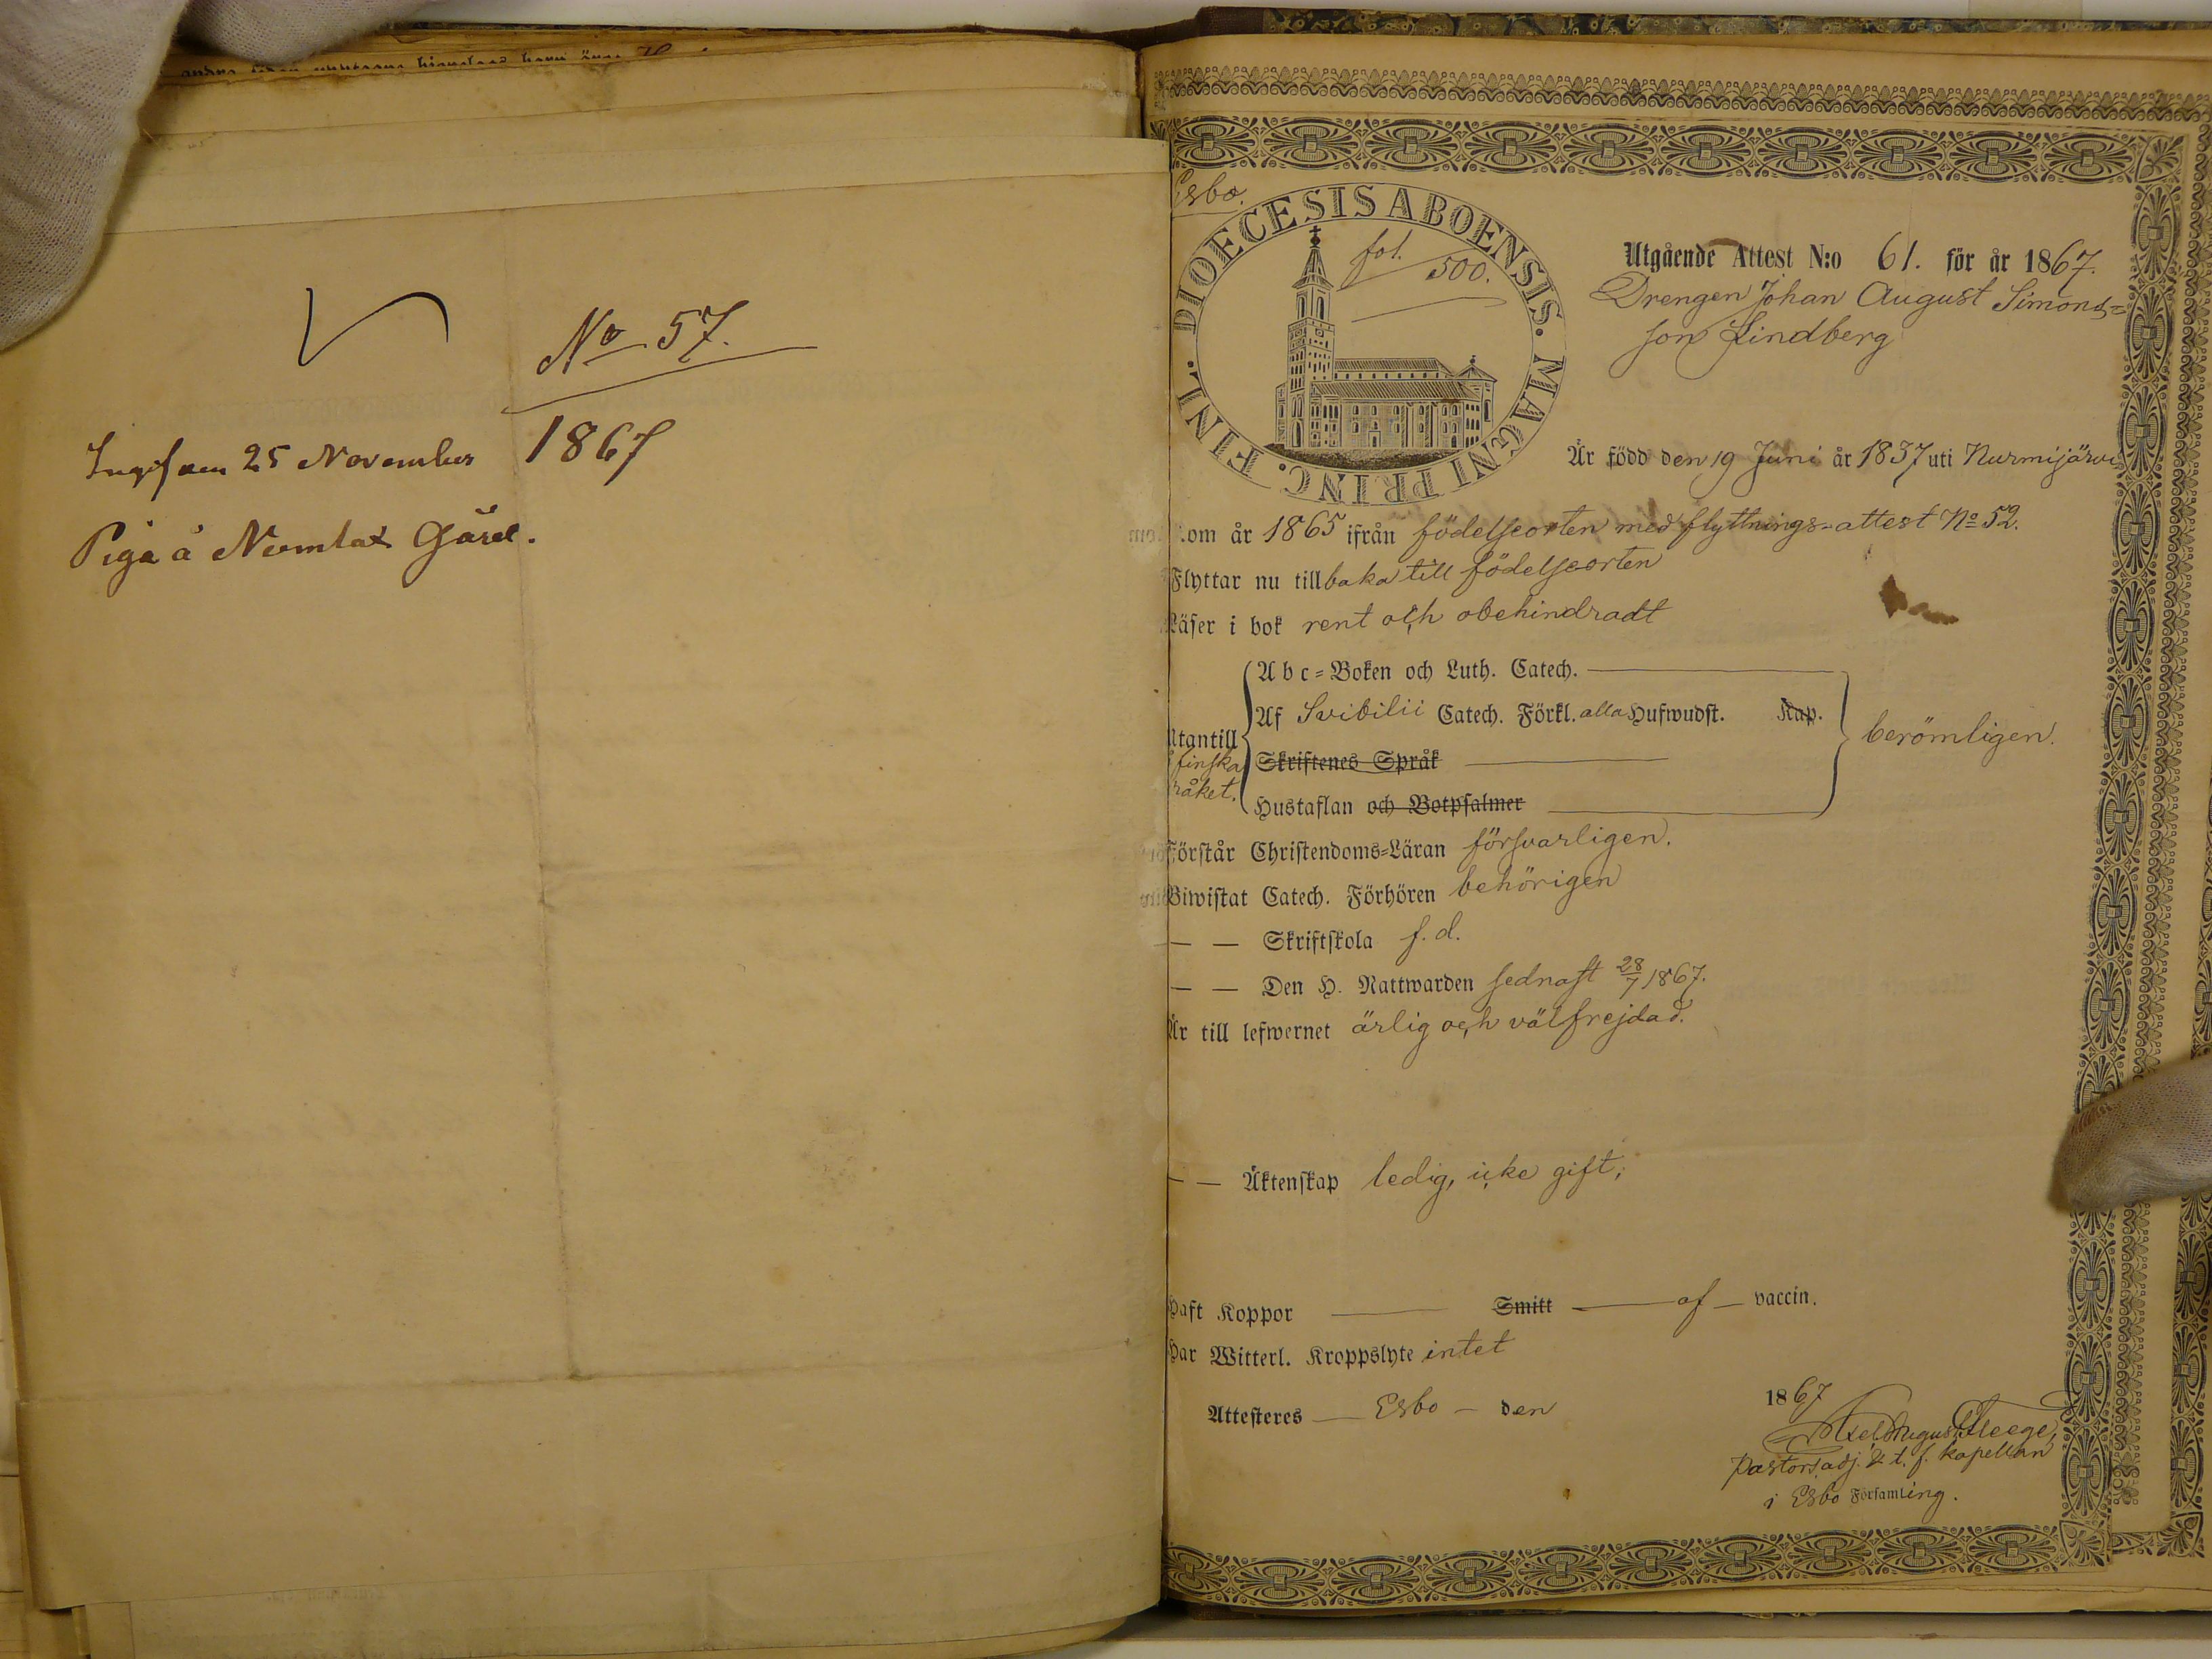 No 57.
1867
25 November
Piga å Numlax Gård.
Esbo.
DIOECESIS ABOENSIS. MAGNI PRINC. FINL.
fol. 500.
Utgående Attest N:o 61. för år 1867.
Drengen Johan August Simons=
son Lindberg
Är född den 19 Juni år 1837 uti Nurmijärvi
kom år 1865 ifrån födelseorten med flyttnings=attest No 52.
Flyttar nu tillbaka till födelseorten
Läser i bok rent och obehindradt
Abc=Boken och Luth. Catech.
Af Svibilii Catech. Förkl. alla Hufwudst. Kap.
Utantill
finska
råket.
Skriftenes Språk
Hustaflan och Botpsalmer
berömligen.
Förstår Christendoms=Läran försvarligen.
Biwistat Catech. Förhören behörigen
— — Skriftskola f. d.
— — Den H. Nattwarden sednast 28/7 1867.
Är till lefwernet ärlig och välfrejdad.
— — Äktenskap ledig, icke gift;
Haft Koppor — Smitt — af — vaccin.
Har Witterl. Kroppslyte intet
Attesteres — Esbo — den 1867
Axel August Fleege,
Pastorsadj. & t. f. kapellan
i Esbo Församling.